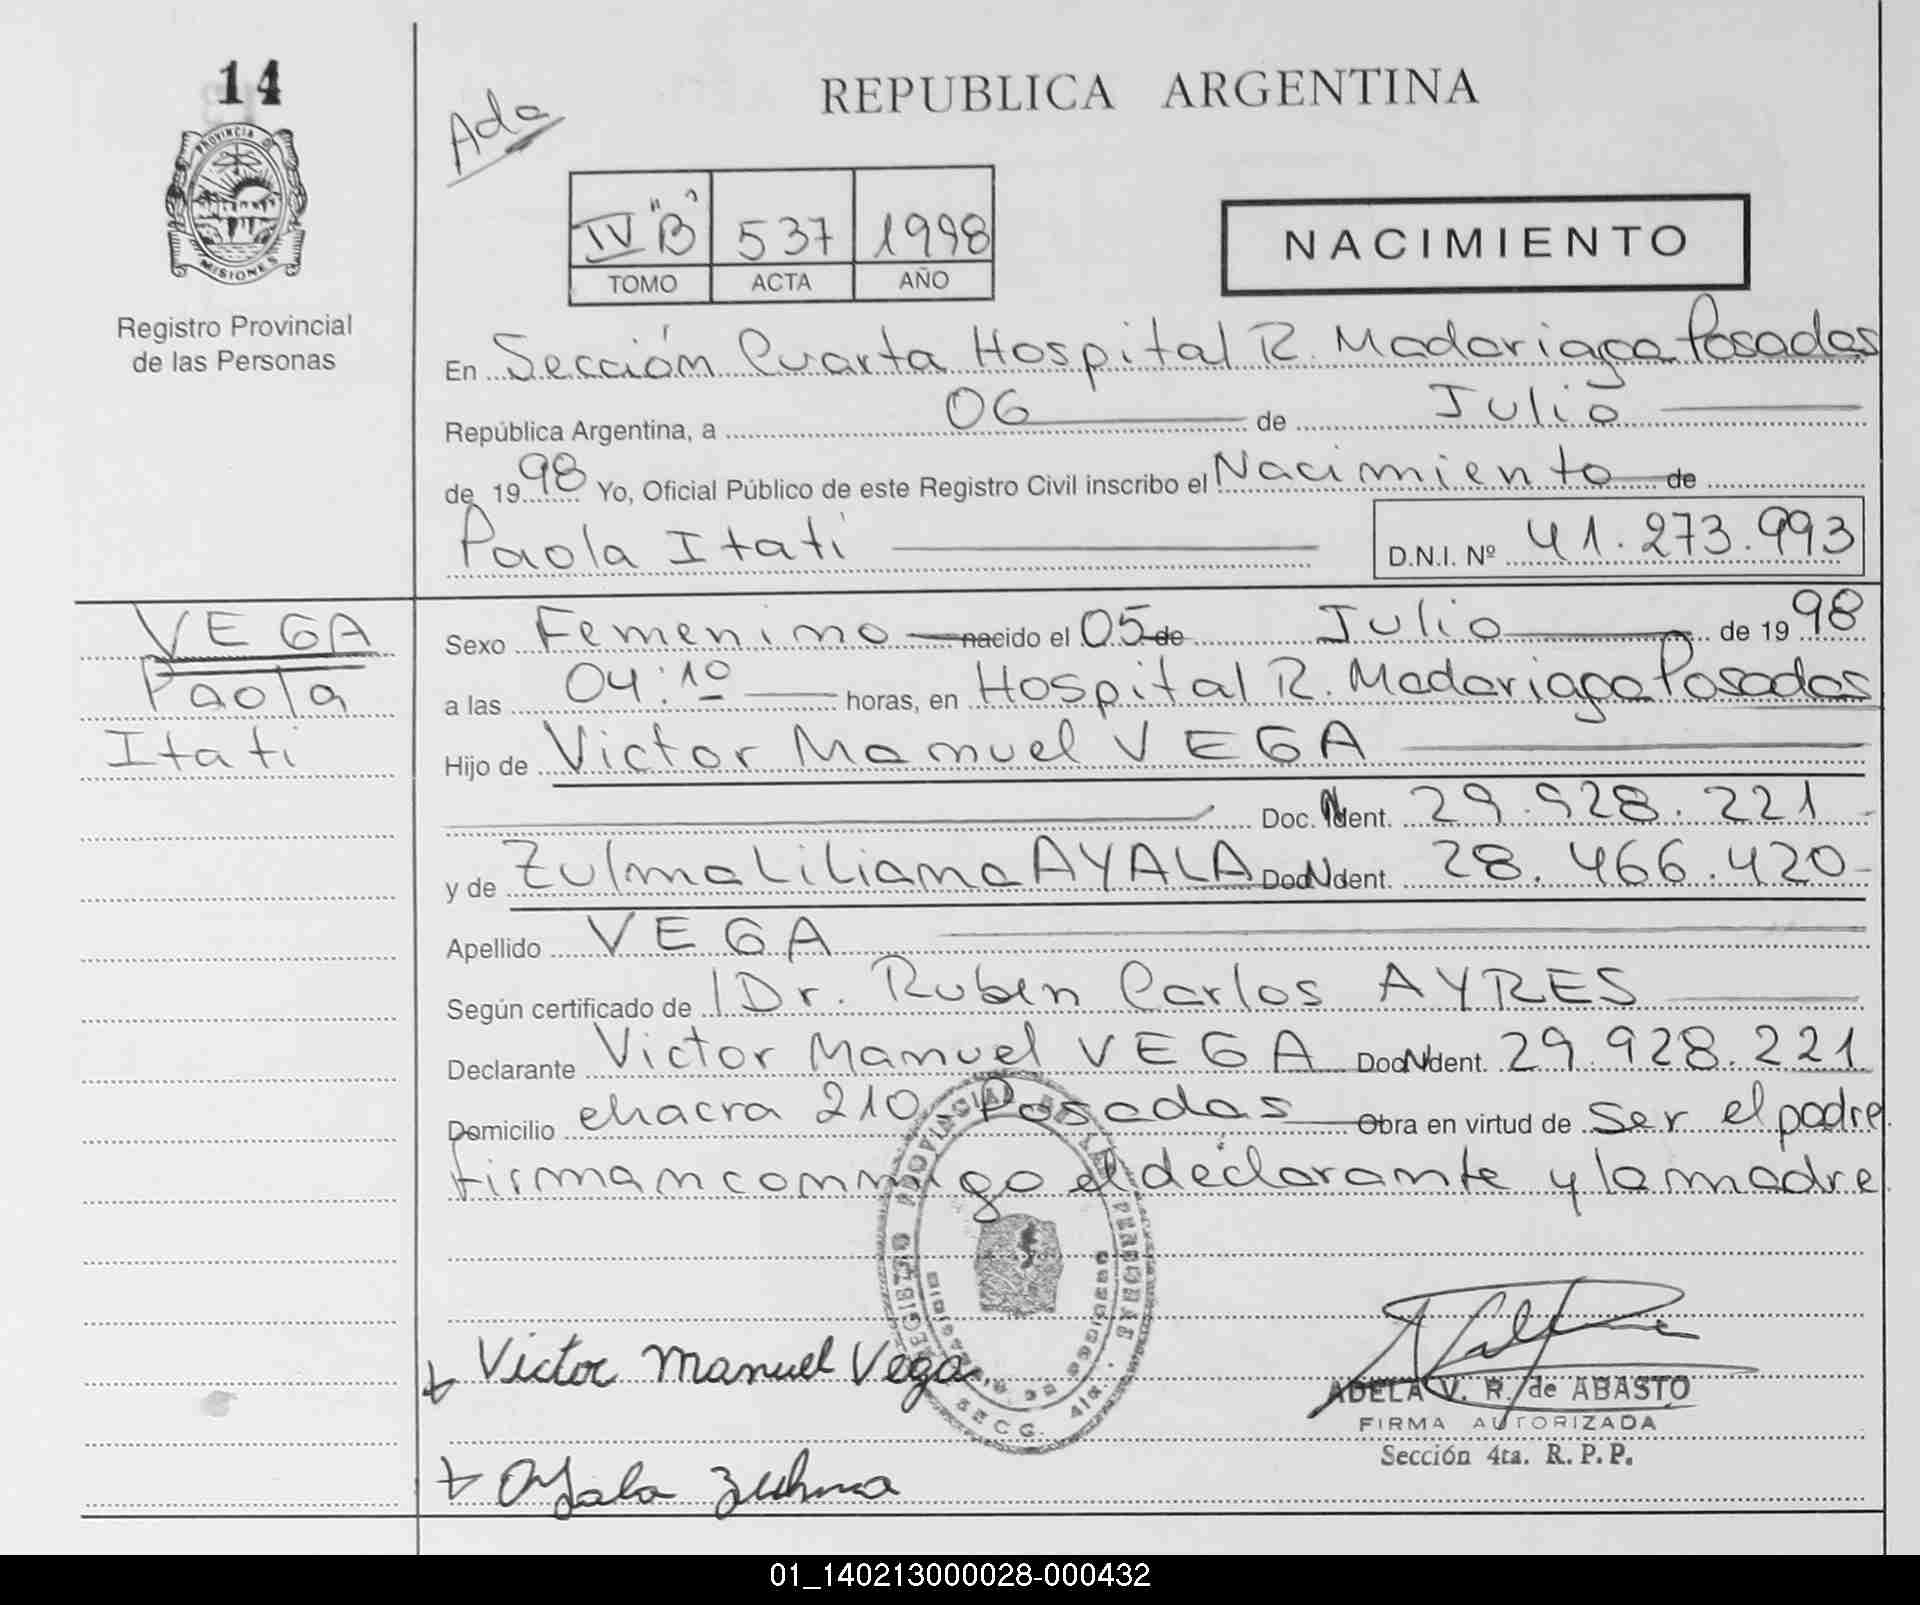 14
PROVINCIA DE
MISIONES
Registro Provincial
de las Personas
Ada
REPUBLICA ARGENTINA
IV "B" 537 1998
TOMO ACTA AÑO
NACIMIENTO
En Sección Cuarta Hospital R. Madariaga Posadas
República Argentina, a 06 de Julio
de 1998 Yo, Oficial Público de este Registro Civil inscribo el Nacimiento de
Paola Itatí
D.N.I. Nº 41.273.993
VEGA
Paola
Itati
Sexo Femenino nacido el 05 de Julio de 1998
a las 04:10 horas, en Hospital R. Madariaga Posadas
Hijo de Victor Manuel VEGA
Doc. Ident. 29.928.221
y de Zulma Liliana AYALA Doc. Ident. 28.466.420
Apellido VEGA
Según certificado de Dr. Ruben Carlos AYRES
Declarante Victor Manuel VEGA Doc. Ident. 29.928.221
Domicilio chacra 210 Posadas Obra en virtud de ser el padre
firman conmigo el declarante y la madre
REGISTRO PROVINCIAL DE LAS PERSONAS
SECC. 4ta.
Victor Manuel Vega
Ayala Zulma
ADELA V. R. de ABASTO
FIRMA AUTORIZADA
Sección 4ta. R.P.P.
01_140213000028-000432